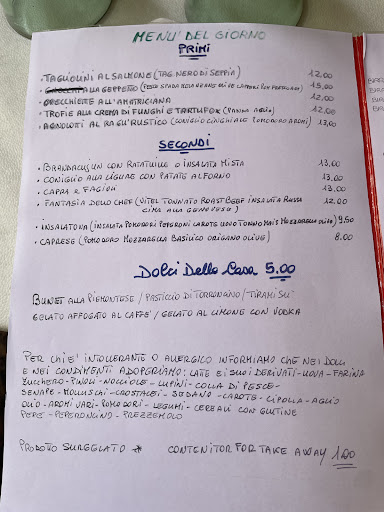 MENU' DEL GIORNO
PRIMI
· TAGLIOLINI AL SALMONE (TAG. NERO DI SEPPIA) 12,00
ALLA GEPPETTO (PESCE SPADA MELANZANE OLIVE CAPPERI POM. 15,00
· ORECCHIETTE ALL'AMATRICIANA 12,00
· TROFIE ALLA CREMA DI FUNGHI E TARTUFO (PANNA AGLIO) 12,00
· AGNOLOTTI AL RAGU' RUSTICO (CONIGLIO CINGHIALE POMODORO AROMI) 13,00
SECONDI
· BRANDACUJUN CON RATATUILLE O INSALATA MISTA 13,00
· CONIGLIO ALLA LIGURE CON PATATE AL FORNO 13,00
· CAPRA E FAGIOLI 13,00
· FANTASIA DELLO CHEF (VITEL TONNATO ROASTBEEF INSALATA RUSSA 12,00
CIMA ALLA GENOVESE)
· INSALATONA (INSALATA POMODORI PEPERONI CAROTE UOVO TONNO MAIS MOZZARELLA OLIVE) 9,50
· CAPRESE (POMODORO MOZZARELLA BASILICO ORIGANO OLIVE) 8.00
DOLCI DELLA CASA 5.00
BUNET ALLA PIEMONTESE / PASTICCIO DI TORRONCINO / TIRAMI SU'
GELATO AFFOGATO AL CAFFE' / GELATO AL LIMONE CON VODKA
PER CHI E' INTOLLERANTE O ALLERGICO INFORMIAMO CHE NEI DOLCI
E NEI CONDIMENTI ADOPERIAMO: LATTE E I SUOI DERIVATI - UOVA - FARINA
ZUCCHERO - PINOLI - NOCCIOLE - LUPINI - COLLA DI PESCE -
SENAPE - MOLLUSCHI - CROSTACEI - SEDANO - CAROTE - CIPOLLA - AGLIO
OLIO - AROMI VARI - POMODORI - LEGUMI - CEREALI CON GLUTINE
PEPE - PEPERONCINO - PREZZEMOLO
PRODOTTO SURGELATO * CONTENITOR FOR TAKE AWAY 1,00